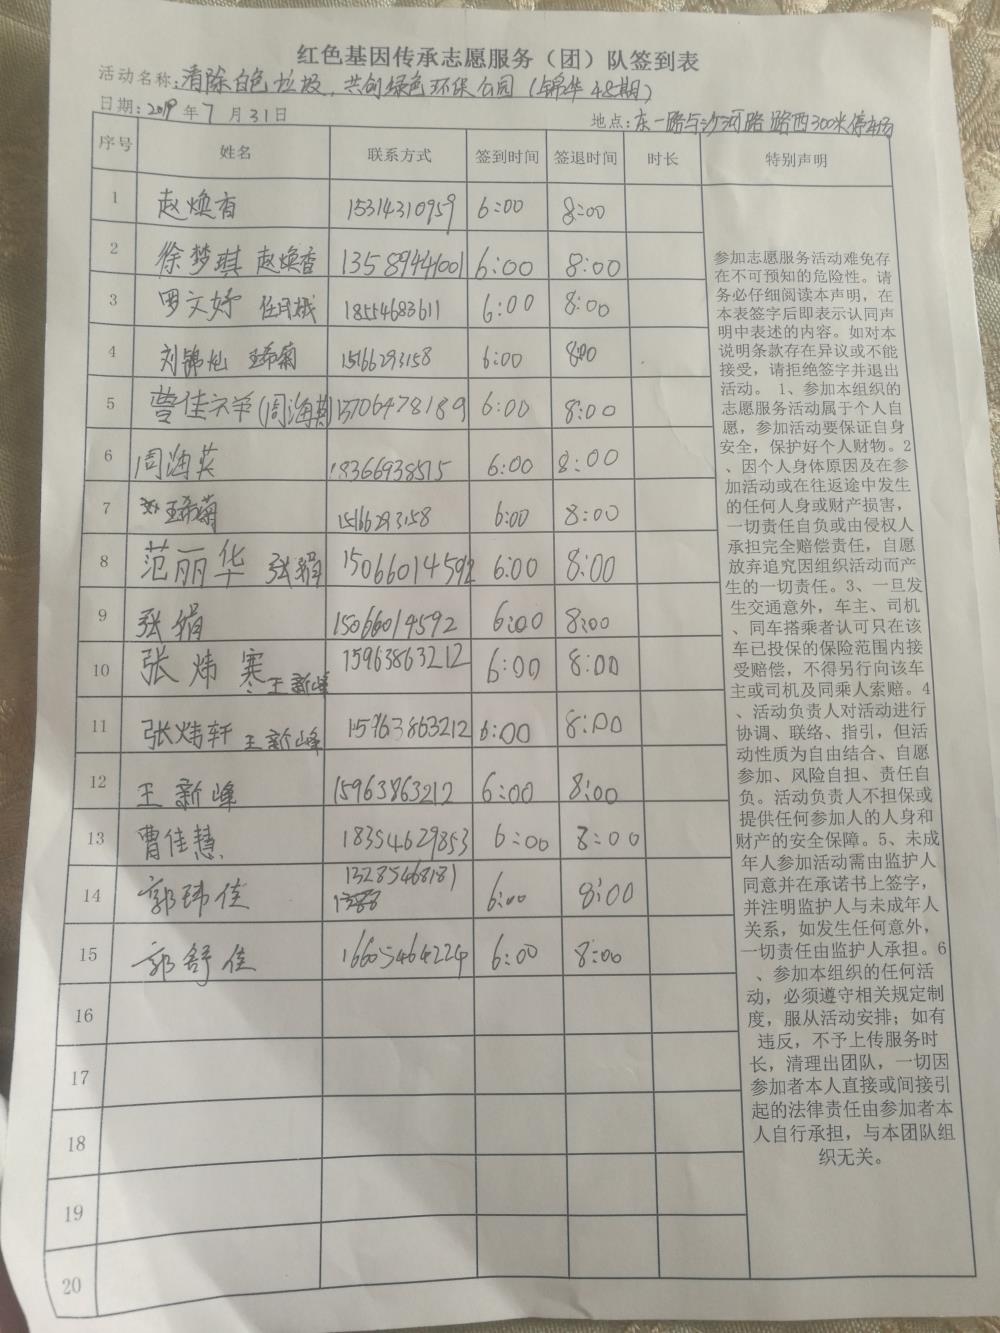 红色基因传承志愿服务（团）队签到表
活动名称:清除白色垃圾,共创绿色环保公园(锦华48期)
日期:2019年7月31日 地点:东一路与沙河路 路西300米停车场
序号 姓名 联系方式 签到时间 签退时间 时长 特别声明
1 赵焕香 15314310959 6:00 8:00
2 徐梦琪 赵焕香 13589441001 6:00 8:00
3 罗文妤 任月娥 18554683611 6:00 8:00
4 刘锦灿 王希菊 15166293158 6:00 8:00
5 曹佳芊(周海英) 13706478189 6:00 8:00
6 周海英 18366938515 6:00 8:00
7 王希菊 15166293158 6:00 8:00
8 范丽华 张娟 15066014592 6:00 8:00
9 张娟 15066014592 6:00 8:00
10 张炜寒 王新峰 15963863212 6:00 8:00
11 张炜轩 王新峰 15963863212 6:00 8:00
12 王新峰 15963863212 6:00 8:00
13 曹佳慧 18354629853 6:00 8:00
14 郭玮佳 13285468181 6:00 8:00
15 郭舒佳 16605464224 6:00 8:00
16
17
18
19
20
参加志愿服务活动难免存
在不可预知的危险性。请
务必仔细阅读本声明，在
本表签字后即表示认同声
明中表述的内容。如对本
说明条款存在异议或不能
接受，请拒绝签字并退出
活动。 1、参加本组织的
志愿服务活动属于个人自
愿，参加活动要保证自身
安全，保护好个人财物。2
、因个人身体原因及在参
加活动或在往返途中发生
的任何人身或财产损害，
一切责任自负或由侵权人
承担完全赔偿责任，自愿
放弃追究因组织活动而产
生的一切责任。3、一旦发
生交通意外，车主、司机
、同车搭乘者认可只在该
车已投保的保险范围内接
受赔偿，不得另行向该车
主或司机及同乘人索赔。4
、活动负责人对活动进行
协调、联络、指引，但活
动性质为自由结合、自愿
参加、风险自担、责任自
负。活动负责人不担保或
提供任何参加人的人身和
财产的安全保障。5、未成
年人参加活动需由监护人
同意并在承诺书上签字，
并注明监护人与未成年人
关系，如发生任何意外，
一切责任由监护人承担。6
、参加本组织的任何活
动，必须遵守相关规定制
度，服从活动安排；如有
违反，不予上传服务时
长，清理出团队，一切因
参加者本人直接或间接引
起的法律责任由参加者本
人自行承担，与本团队组
织无关。